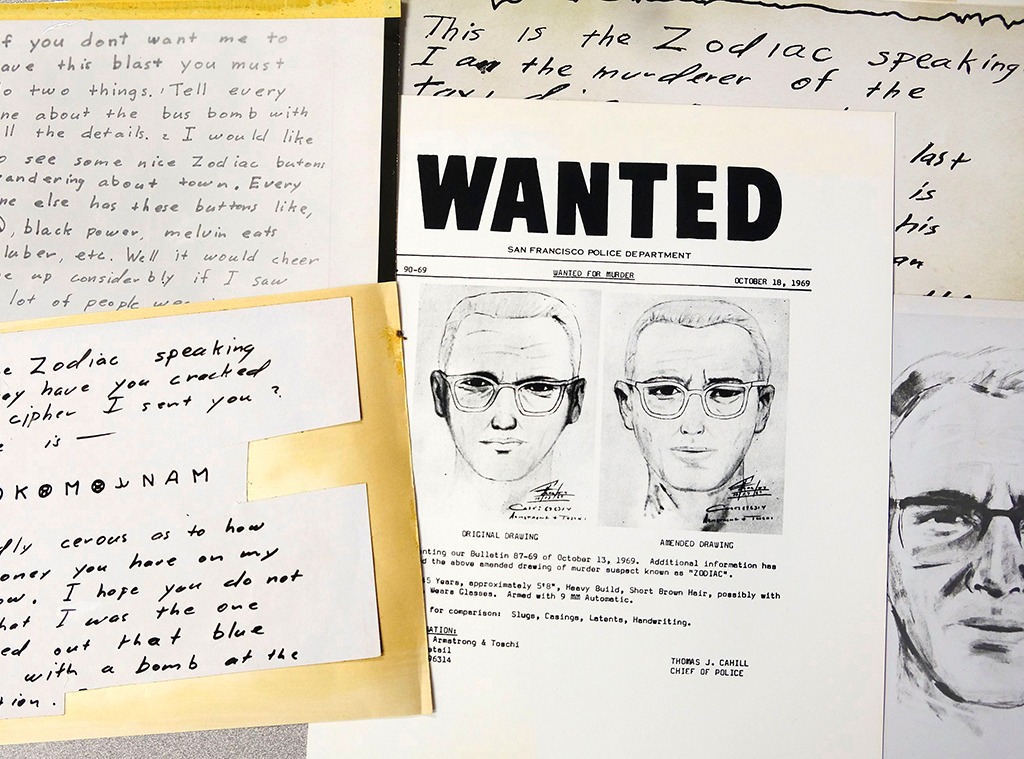 f you dont want me to
ave this blast you must
o two things. 1 Tell every
ne about the bus bomb with
ll the details. 2 I would like
o see some nice Zodiac butons
andering about town. Every
ne else has these buttons like,
, black power, melvin eats
luber, etc. Well it would cheer
e up considerbly if I saw
lot of people
e Zodiac speaking
ay have you cracked
cipher I sent you ?
e is —
M NAM
fly cerous as to how
oney you have on my
ow. I hope you do not
hat I was the one
ed out that blue
with a bomb at the
tion.
This is the Zodiac speaking
I am the murderer of the
last
is
his
an
WANTED
SAN FRANCISCO POLICE DEPARTMENT
90-69 WANTED FOR MURDER OCTOBER 18, 1969
ORIGINAL DRAWING AMENDED DRAWING
nting our Bulletin 87-69 of October 13, 1969. Additional information has
d the above amended drawing of murder suspect known as "ZODIAC".
5 Years, approximately 5'8", Heavy Build, Short Brown Hair, possibly with
Wears Glasses. Armed with 9 MM Automatic.
for comparison: Slugs, Casings, Latents, Handwriting.
MATION:
Armstrong & Toschi
etail
96314
THOMAS J. CAHILL
CHIEF OF POLICE